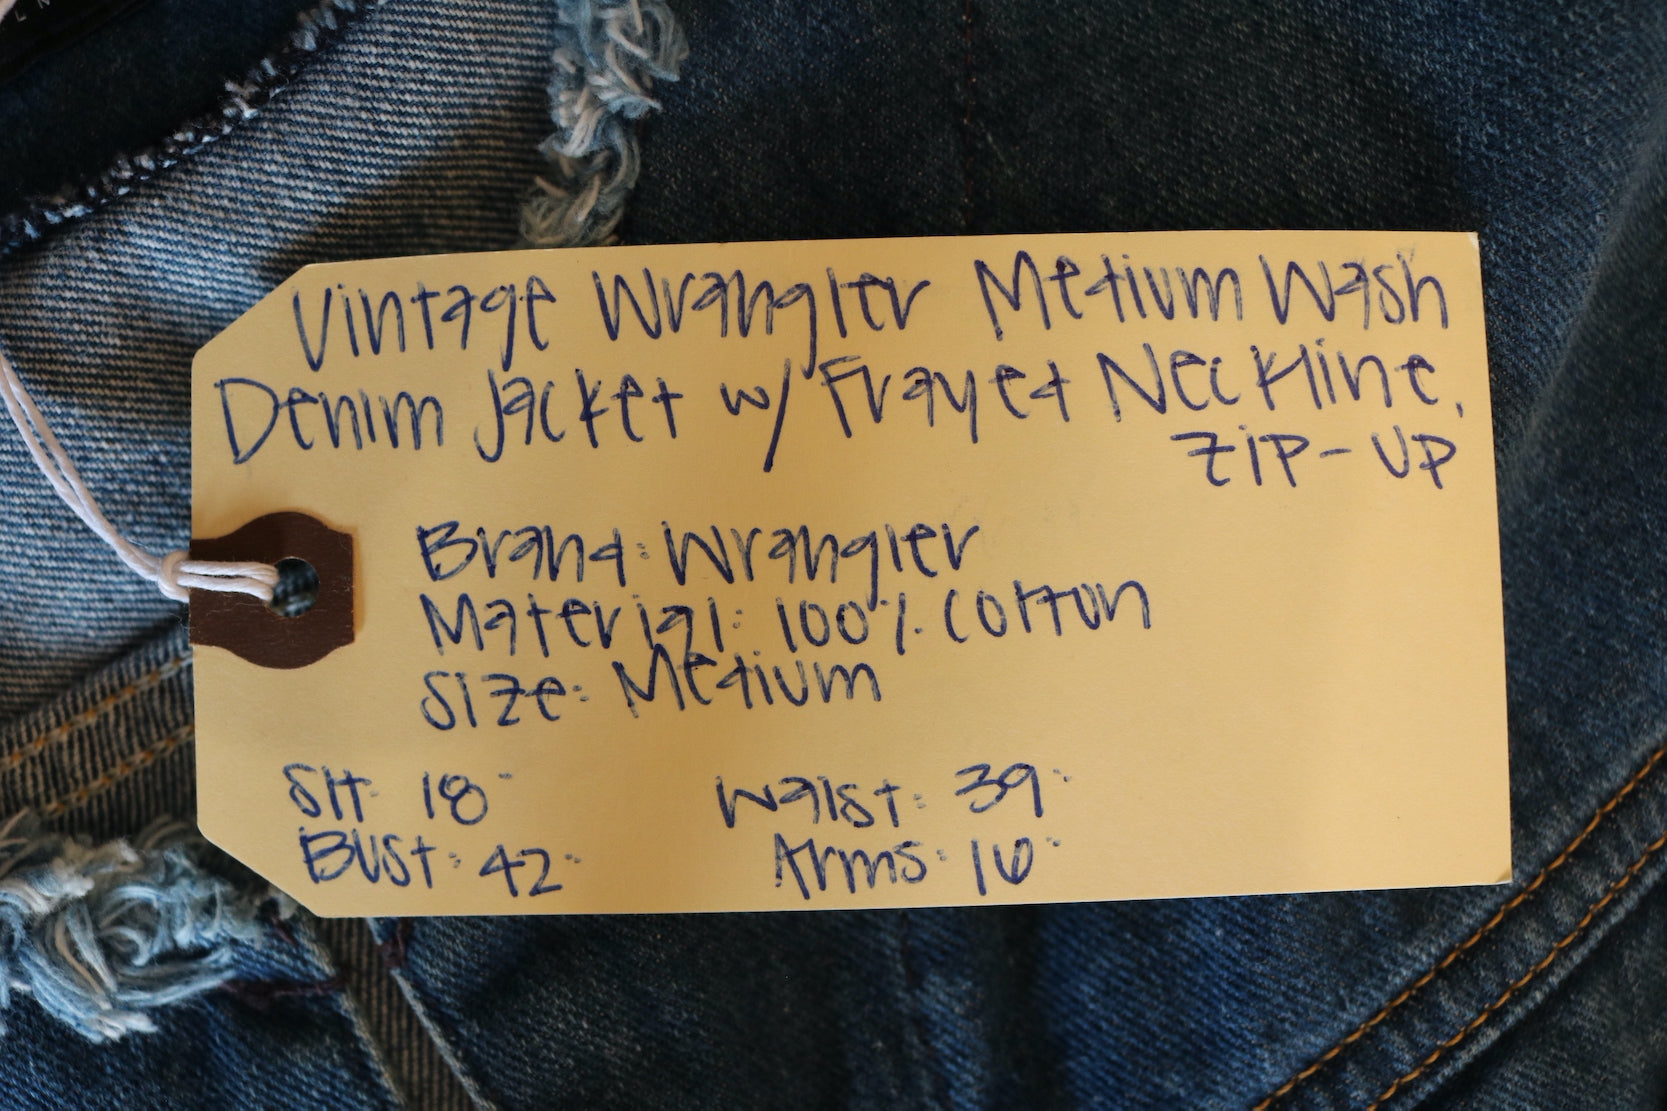 Vintage Wrangler Medium Wash
Denim Jacket w/ Frayed Neckline,
Zip-Up
Brand: Wrangler
Material: 100% Cotton
Size: Medium
18"
Waist: 39"
Bust: 42"
Arms: 16"